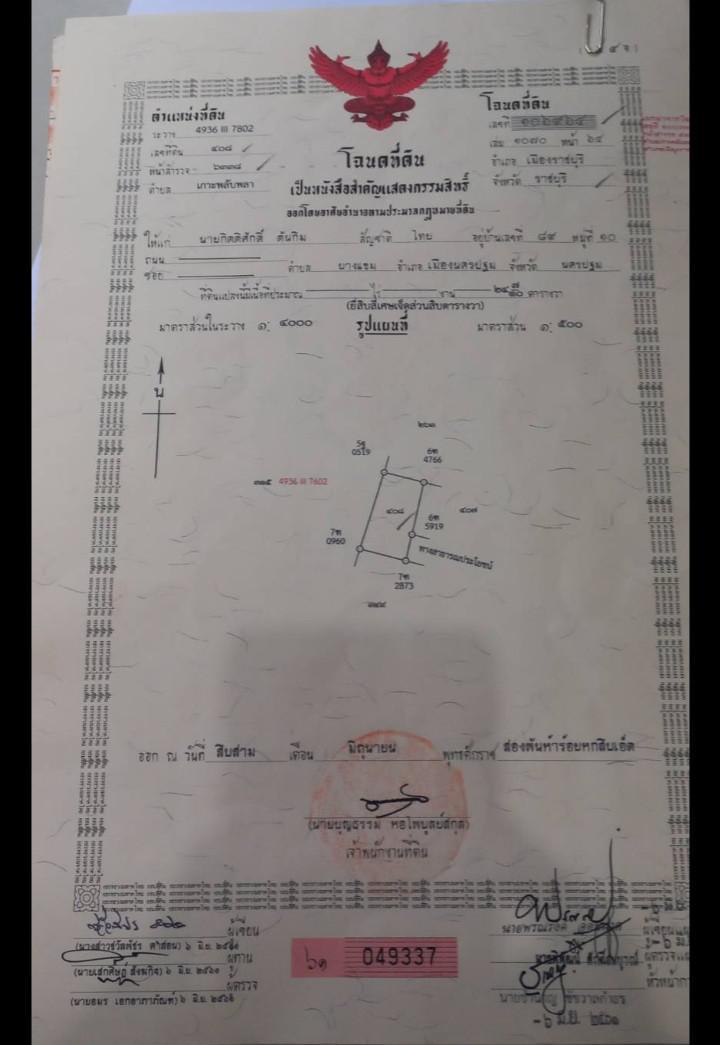 ตำแหน่งที่ดิน
ระวาง 4936 III 7802
เลขที่ดิน ๔๐๘
หน้าสำรวจ ๖๓๓๘
ตำบล เกาะพลับพลา
โฉนดที่ดิน
เลขที่ ๑๐๖๔๖๔
เล่ม ๑๐๗๐ หน้า ๖๔
อำเภอ เมืองราชบุรี
จังหวัด ราชบุรี
โฉนดที่ดิน
เป็นหนังสือสำคัญแสดงกรรมสิทธิ์
ออกโดยอาศัยอำนาจตามประมวลกฎหมายที่ดิน
ให้แก่ นายกิตติศักดิ์ ตันกิม สัญชาติ ไทย อยู่บ้านเลขที่ ๘๙ หมู่ที่ ๑๐
ถนน
ซอย ตำบล บางแขม อำเภอ เมืองนครปฐม จังหวัด นครปฐม
ที่ดินแปลงนี้มีเนื้อที่ประมาณ ไร่ งาน ตารางวา
(ยี่สิบสี่เศษเจ็ดส่วนสิบตารางวา)
มาตราส่วนในระวาง ๑: ๔๐๐๐ รูปแผนที่ มาตราส่วน ๑: ๕๐๐
น
0519
4766
4936 III 7602
๔๐๘
๔๐๗
5919
0960
ทางสาธารณประโยชน์
2873
ออก ณ วันที่ สิบสาม เดือน มิถุนายน พุทธศักราช สองพันห้าร้อยหกสิบเอ็ด
(นายบุญธรรม หอไพบูลย์สกุล)
เจ้าพนักงานที่ดิน
ผู้เขียน
ผู้ทาน
ผู้ตรวจ
(นายอมร เอกอาภาภัณฑ์) ๖ มิ.ย. ๒๕๖๑
๖๑ 049337
-๖ มิ.ย. ๒๕๖๑